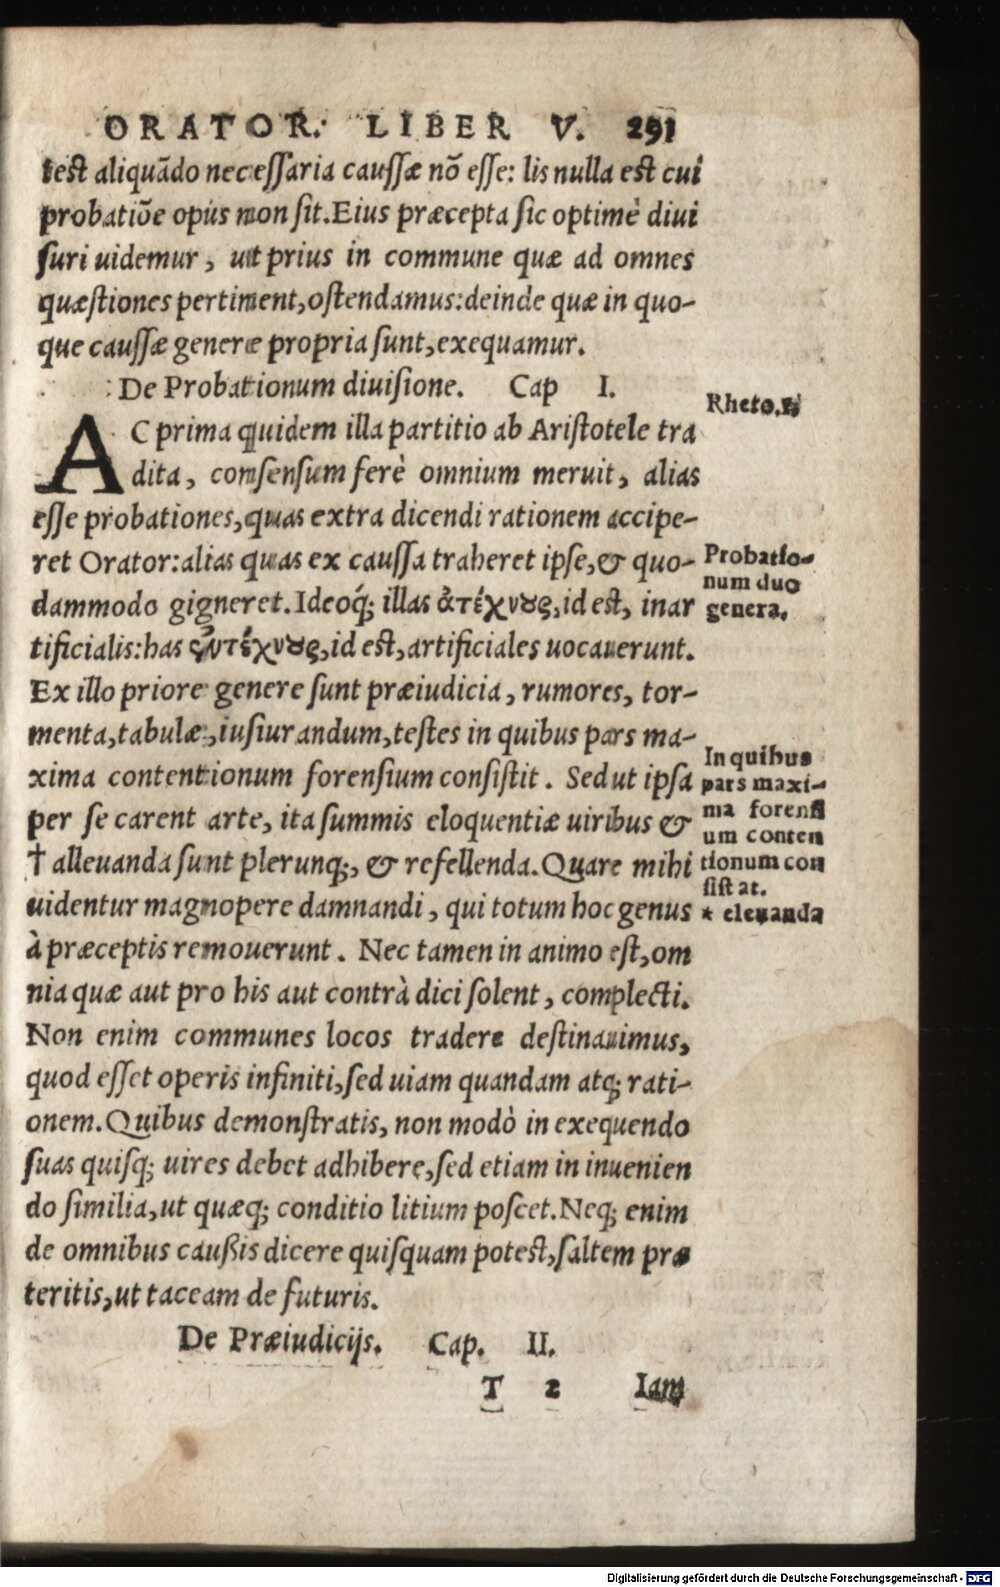 ORATOR. LIBER V. 291
test aliquādo necessaria caussæ nō esse: lis nulla est cui
probatiōe opus non sit. Eius præcepta sic optimè diui
suri uidemur, ut prius in commune quæ ad omnes
quæstiones pertinent, ostendamus: deinde quæ in quo-
que caussæ genere propria sunt, exequamur.
De Probationum diuisione. Cap I.
Rheto.
AC prima quidem illa partitio ab Aristotele tra
dita, consensum ferè omnium meruit, alias
esse probationes, quas extra dicendi rationem accipe-
ret Orator: alias quas ex caussa traheret ipse, & quo-
dammodo gigneret. Ideoq́; illas ἀτέχνους, id est, inar
tificialis: has ἐντέχνους, id est, artificiales uocauerunt.
Probatio-
num duo
genera.
Ex illo priore genere sunt præiudicia, rumores, tor-
menta, tabulæ, iusiurandum, testes in quibus pars ma-
xima contentionum forensium consistit. Sed ut ipsa
per se carent arte, ita summis eloquentiæ uiribus &
† alleuanda sunt plerunq;, & refellenda. Quare mihi
uidentur magnopere damnandi, qui totum hoc genus
In quibus
pars maxi-
ma forensi
um conten
tionum con
sistat.
* eleuanda
à præceptis remouerunt. Nec tamen in animo est, om
nia quæ aut pro his aut contrà dici solent, complecti.
Non enim communes locos tradere destinauimus,
quod esset operis infiniti, sed uiam quandam atq; rati-
onem. Quibus demonstratis, non modò in exequendo
suas quisq; uires debet adhibere, sed etiam in inuenien
do similia, ut quæq; conditio litium poscet. Neq; enim
de omnibus caußis dicere quisquam potest, saltem præ
teritis, ut taceam de futuris.
De Præiudicijs. Cap. II.
T 2 Iam
Digitalisierung gefördert durch die Deutsche Forschungsgemeinschaft - DFG